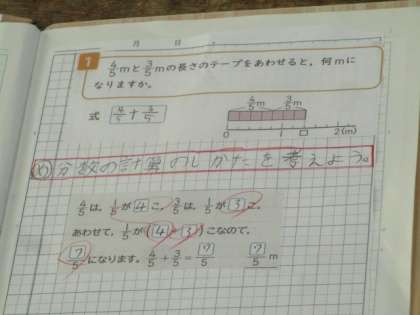 月 日
1 4/5mと3/5mの長さのテープをあわせると，何mに
なりますか。
式 4/5+3/5
4/5m 3/5m
0 1 2(m)
め 分数の計算のしかたを考えよう。
4/5は，1/5が4こ，3/5は，1/5が3こ。
あわせて，1/5が(4+3)こなので，
7/5になります。4/5+3/5=7/5 7/5m